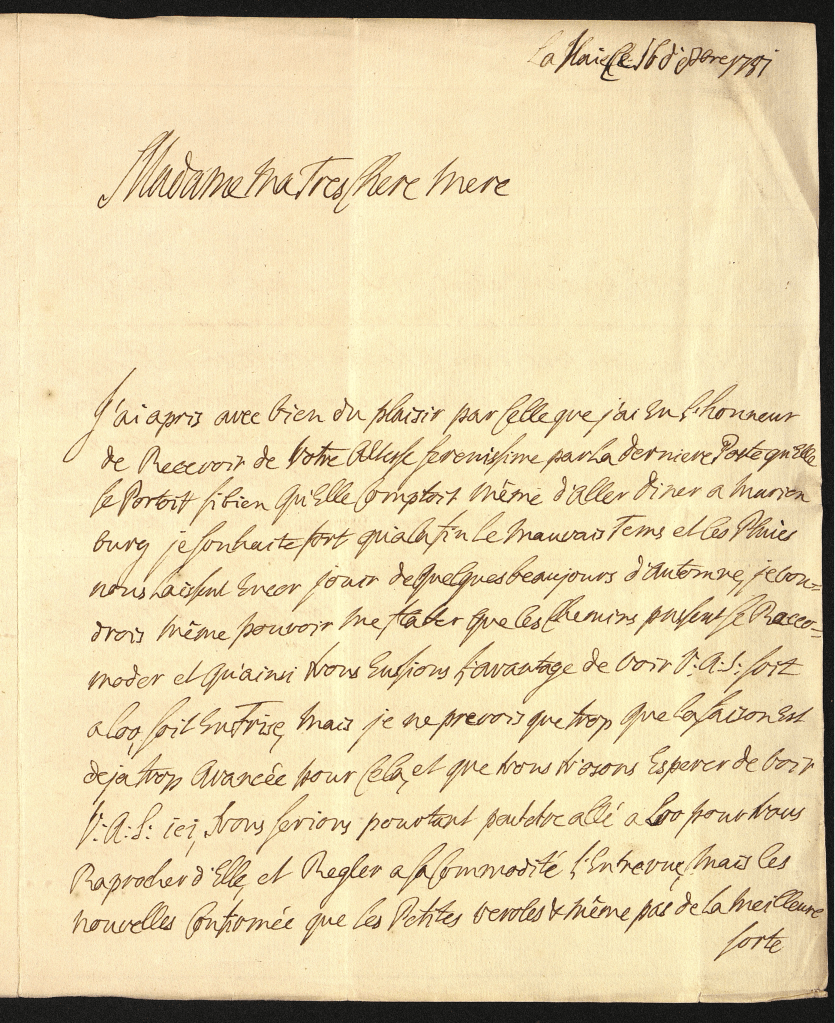 La Haie Ce 16 d'8bre 1731
Madame Ma Tres Chere Mere
J'ai apris avec bien du plaisir par Celle que j'ai Eu L'honneur
de Recevoir de Votre Altesse Serenissime par La derniere Poste qu'Elle
se Portoit si bien qu'Elle Comptoit même d'aller diner a Marien
burg je souhaite fort qu'a la fin Le Mauvais Tems et les Pluies
nous Laissent Encor jouir de quelques beaujours d'Automne, je vou-
drois même pouvoir me flater que les Chemins pussent se Racco-
moder et qu'ainsi Nous Eussions L'avantage de voir V: A: S: soit
a Loo, soit En Frise, Mais je ne prevois que trop que la saison Est
deja trop Avancée pour Cela, et que Nous N'osons Esperer de voir
V: A: S: ici, Nous serions pourtant peutetre allé a Loo pour Nous
Raprocher d'Elle, et Regler a sa Commodité L'Entrevue, Mais les
nouvelles Confirmée que les Petites veroles & même pas de la Meilleure
sorte